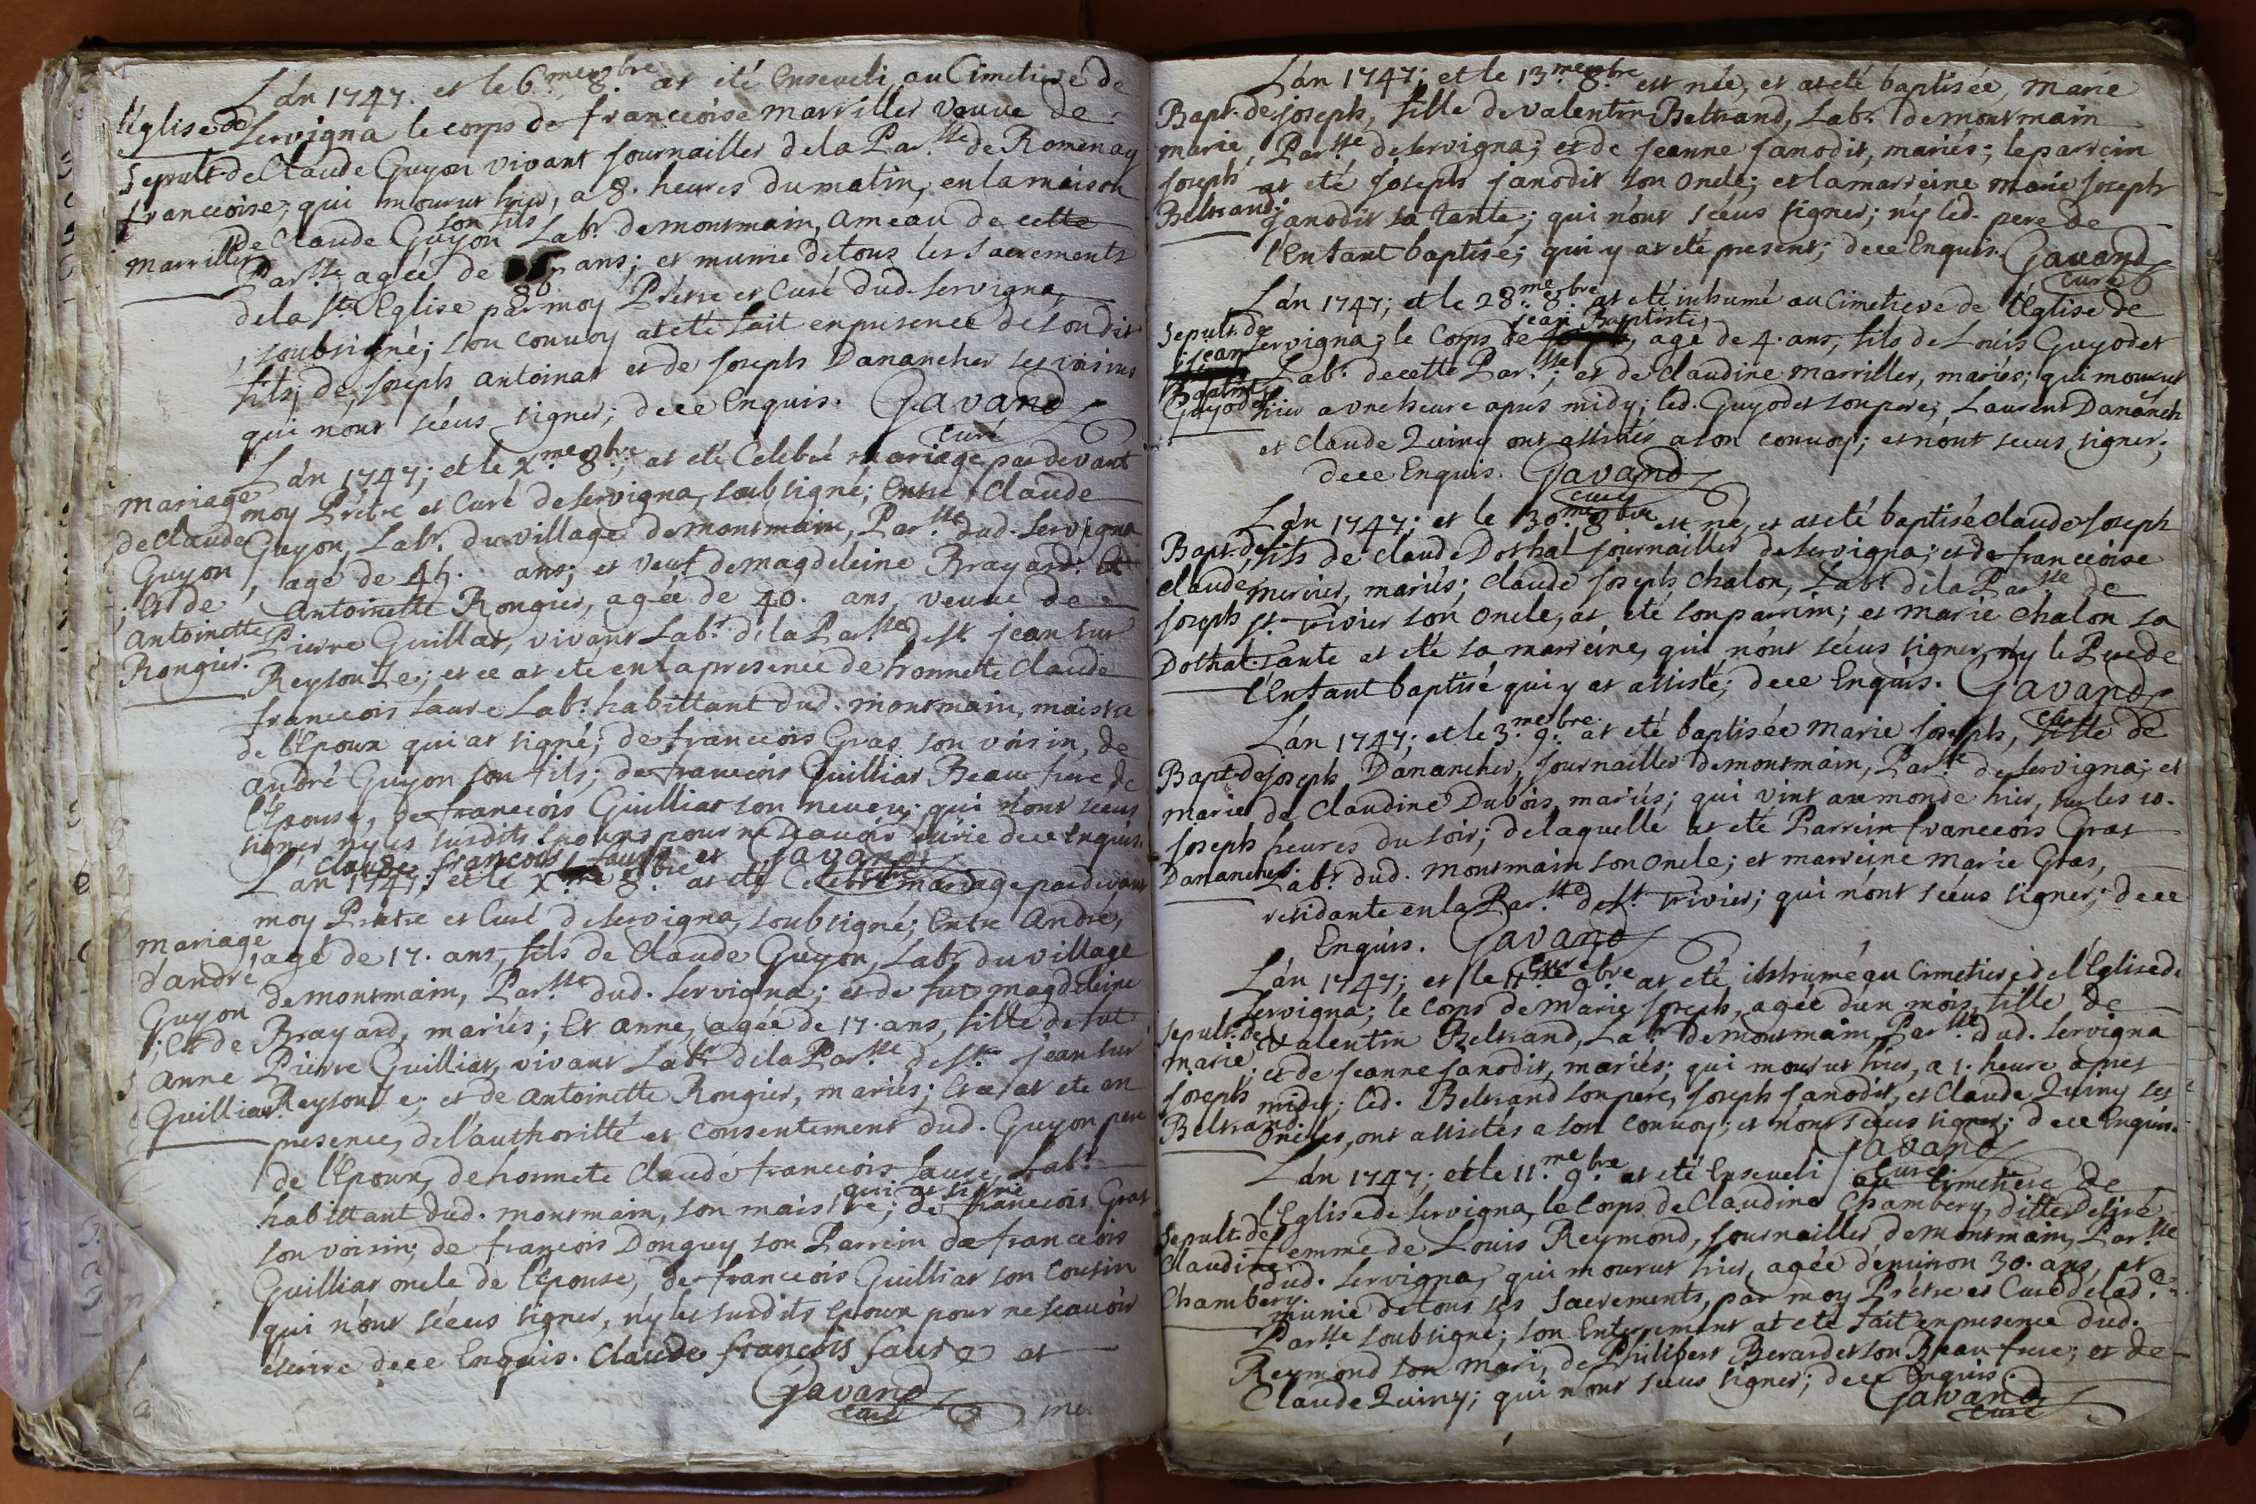 L'án 1747. et le 6.me 8.bre at eté Enseveli au Cimetiere de
l'Eglise de Servigna le corps de franceoise marriller veuve de
Sepult. de Claude Guyon vivant journaillier de la Par.sse de Romenay
franceoise; qui mourut hier, a 8. heures du matin, en la maison
son fils
de Claude Guyon Lab.r de montmain, ameau de cette
marriller
Par.sse, agée de ans; et munie de tous les sacrements
de la S.te Eglise par moy Prêtre et Curé dud. Servigna,
soubsigné; son convoy at eté fait en presence de son dit
fils; de Joseph antoinat et de Joseph Danancher ses voisins
qui n'ont sceus signer; de ce Enquis. Gavand
curé
L'án 1747; et le X.me 8.bre; at eté Celebré mariage par devant
mariage moy Prêtre et Curé de Servigna, soubsigné; Entre Claude
de Claude Guyon, Lab.r du village de montmain, Par.sse dud. Servigna
Guyon, agé de 45. ans; et veuf de magdeleine Brayard; Et
; Et de Antoinette Rongier, agée de 40. ans, veuve de
Antoinette Pierre Guillat, vivant Lab.r de la Par.sse de St. jean sur
Rongier. Reysouze; et ce at eté en la presence de honnete Claude
franceois faure Lab.r habittant dud. montmain, maistre
de l'Epoux qui at signé; de franceois Gras son voisin, de
andré Guyon son fils; de franceois Guilliat Beau frere de
l'Epouse, de franceois Guilliat son neveu; qui n'ont sceus
signer, n'y les susdits Epoux pour ne sçavoir écrire de ce Enquis.
Claude françois faure et Gavand
curé
L'án 1747; et le X.me 8.bre at eté Celebré mariage par devant
moy Prêtre et Curé de Servigna, soubsigné; Entre André,
mariage, agé de 17. ans, fils de Claude Guyon, Lab.r du village
d'andré de montmain, Par.sse dud. Servigna; et de fut magdeleine
Guyon Brayard, mariés; Et anne, agée de 17. ans, fille de fut
; et de Pierre Guilliat, vivant Lab.r de la Par.sse de St. jean sur
anne Reysouze; et de Antoinette Rongier, mariés; Ce at eté en
Guilliat. presence, de l'authoritté et consentement dud. Guyon pere
de l'Epoux, de honnete Claude franceois faure, Lab.r
qui at signé
habittant dud. montmain, son maistre; de franceois Gras
son voisin; de françois Donguy son Parrein de franceois
Guilliat oncle de l'épouse, de franceois Guilliat son Cousin
qui n'ont sceus signer, n'y les susdits Epoux pour ne sçauoir
écrire de ce Enquis. Claude françois faure at
Gavand
curé
L'án 1747; et le 13.me 8.bre est née, et at eté baptisée, marie
Bapt. de joseph, fille de Valentin Beltrand, Lab.r de montmain
marie Par.sse de Servigna; et de Jeanne Janodit, mariés; le parrein
joseph at eté Joseph janodit son oncle; et la marreine marie Joseph
Beltrand. Janodit sa tante; qui n'ont sceus signer; n'y led. pere de
l'Enfant baptisé; qui y at eté present; de ce Enquis. Gavand
curé
L'án 1747; et le 28.me 8.bre at eté inhumé au Cimetiere de l'Eglise de
jean Baptiste,
Sepult. de Servigna; le Corps de agé de 4. ans, fils de Louis Guyodet
jean Lab.r de cette Par.sse; et de Claudine marriller, mariés; qui mourut
Baptiste
Guyodet hier a une heure aprés midy; led. Guyodet son pere; Laurent Dananch
et Claude Quiny ont assistés a son convoy; et n'ont sceus signer;
de ce Enquis. Gavand
curé
L'án 1747; et le 30.me 8.bre est né, et at eté baptisé claude Joseph
Bapt. de, fils de claude Dothal journaillier de Servigna; et de franceoise
claude mercier, mariés; claude Joseph chalon, Lab.r de la Par.sse de
joseph St. trivier son oncle, at eté son parrein; et marie chalon sa
Dothal. tante at eté sa marreine, qui n'ont sceus signer, n'y le Pere de
l'Enfant baptisé qui y at assisté; de ce Enquis. Gavand
curé
L'án 1747; et le 3.me 9.bre at eté baptisée marie joseph, fille de
Bapt. de joseph Danancher, journaillier de montmain, Par.sse de Servigna; et
marie de Claudine Dubois mariés; qui vint au monde hier, sur les 10.
joseph heures du soir; de laquelle at eté Parrein franceois Gras
Danancher. Lab.r dud. montmain son oncle; et marreine marie Gras,
residante en la Par.sse de St. trivier; qui n'ont sceus signer; de ce
Enquis. Gavand
curé
L'án 1747; et le 11.me 9.bre at eté inhumé au Cimetiere de l'Eglise de
Servigna; le corps de marie joseph, agée d'un mois, fille de
Sepult. de Valentin Beltrand, Lab.r de montmain, Par.sse dud. Servigna
marie; et de Jeanne Janodit, mariés; qui mourut hier, a 1. heure aprés
joseph midy; led. Beltrand son pere, Joseph Janodit, et Claude Quiny ses
Beltrand. oncles, ont assistés a son convoy; et n'ont sceus signer; de ce Enquis.
Gavand
curé
L'án 1747; et le 11.me 9.bre at eté Enseveli au Cimetiere de
l'Eglise de Servigna, le Corps de Claudine Chambery, ditte Deliré
Sepult. de femme de Louis Reymond, journaillier de montmain, Par.sse
Claudine dud. Servigna, qui mourut hier, agée d'environ 30. ans, et
Chambery. munie de tous les Sacrements, par moy Prêtre et Curé de lad.e
Par.sse soubsigné; son Enterrement at eté fait en presence dud.
Reymond son mari, de Philibert Berardet son Beau frere; et de
Claude Quiny; qui n'ont sceus signer; de ce Enquis.
Gavand
curé